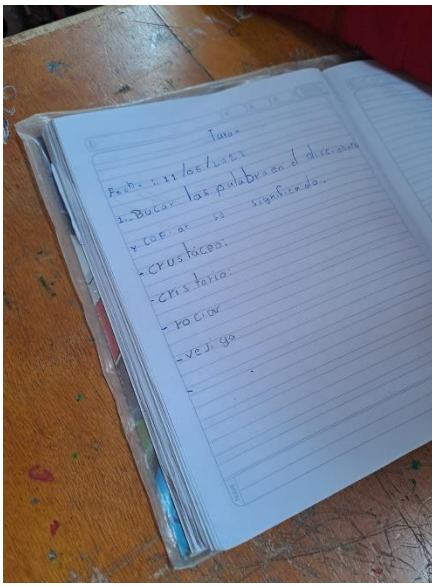 Tarea
Fecha: 11/05/2023
1. Bucar las palabra en el diccionario
y copiar su significado.
- crustáceo:
- cristerio:
- rociar
- vejiga
-